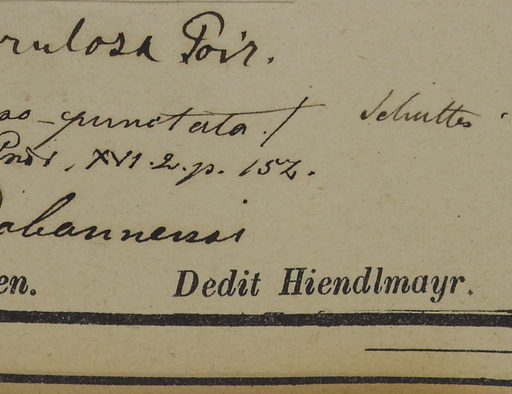 rulosa Poir.
so-punctata.) Schultes
Prodr, XVI.2.p. 152.
abannensi
en. Dedit Hiendlmayr.